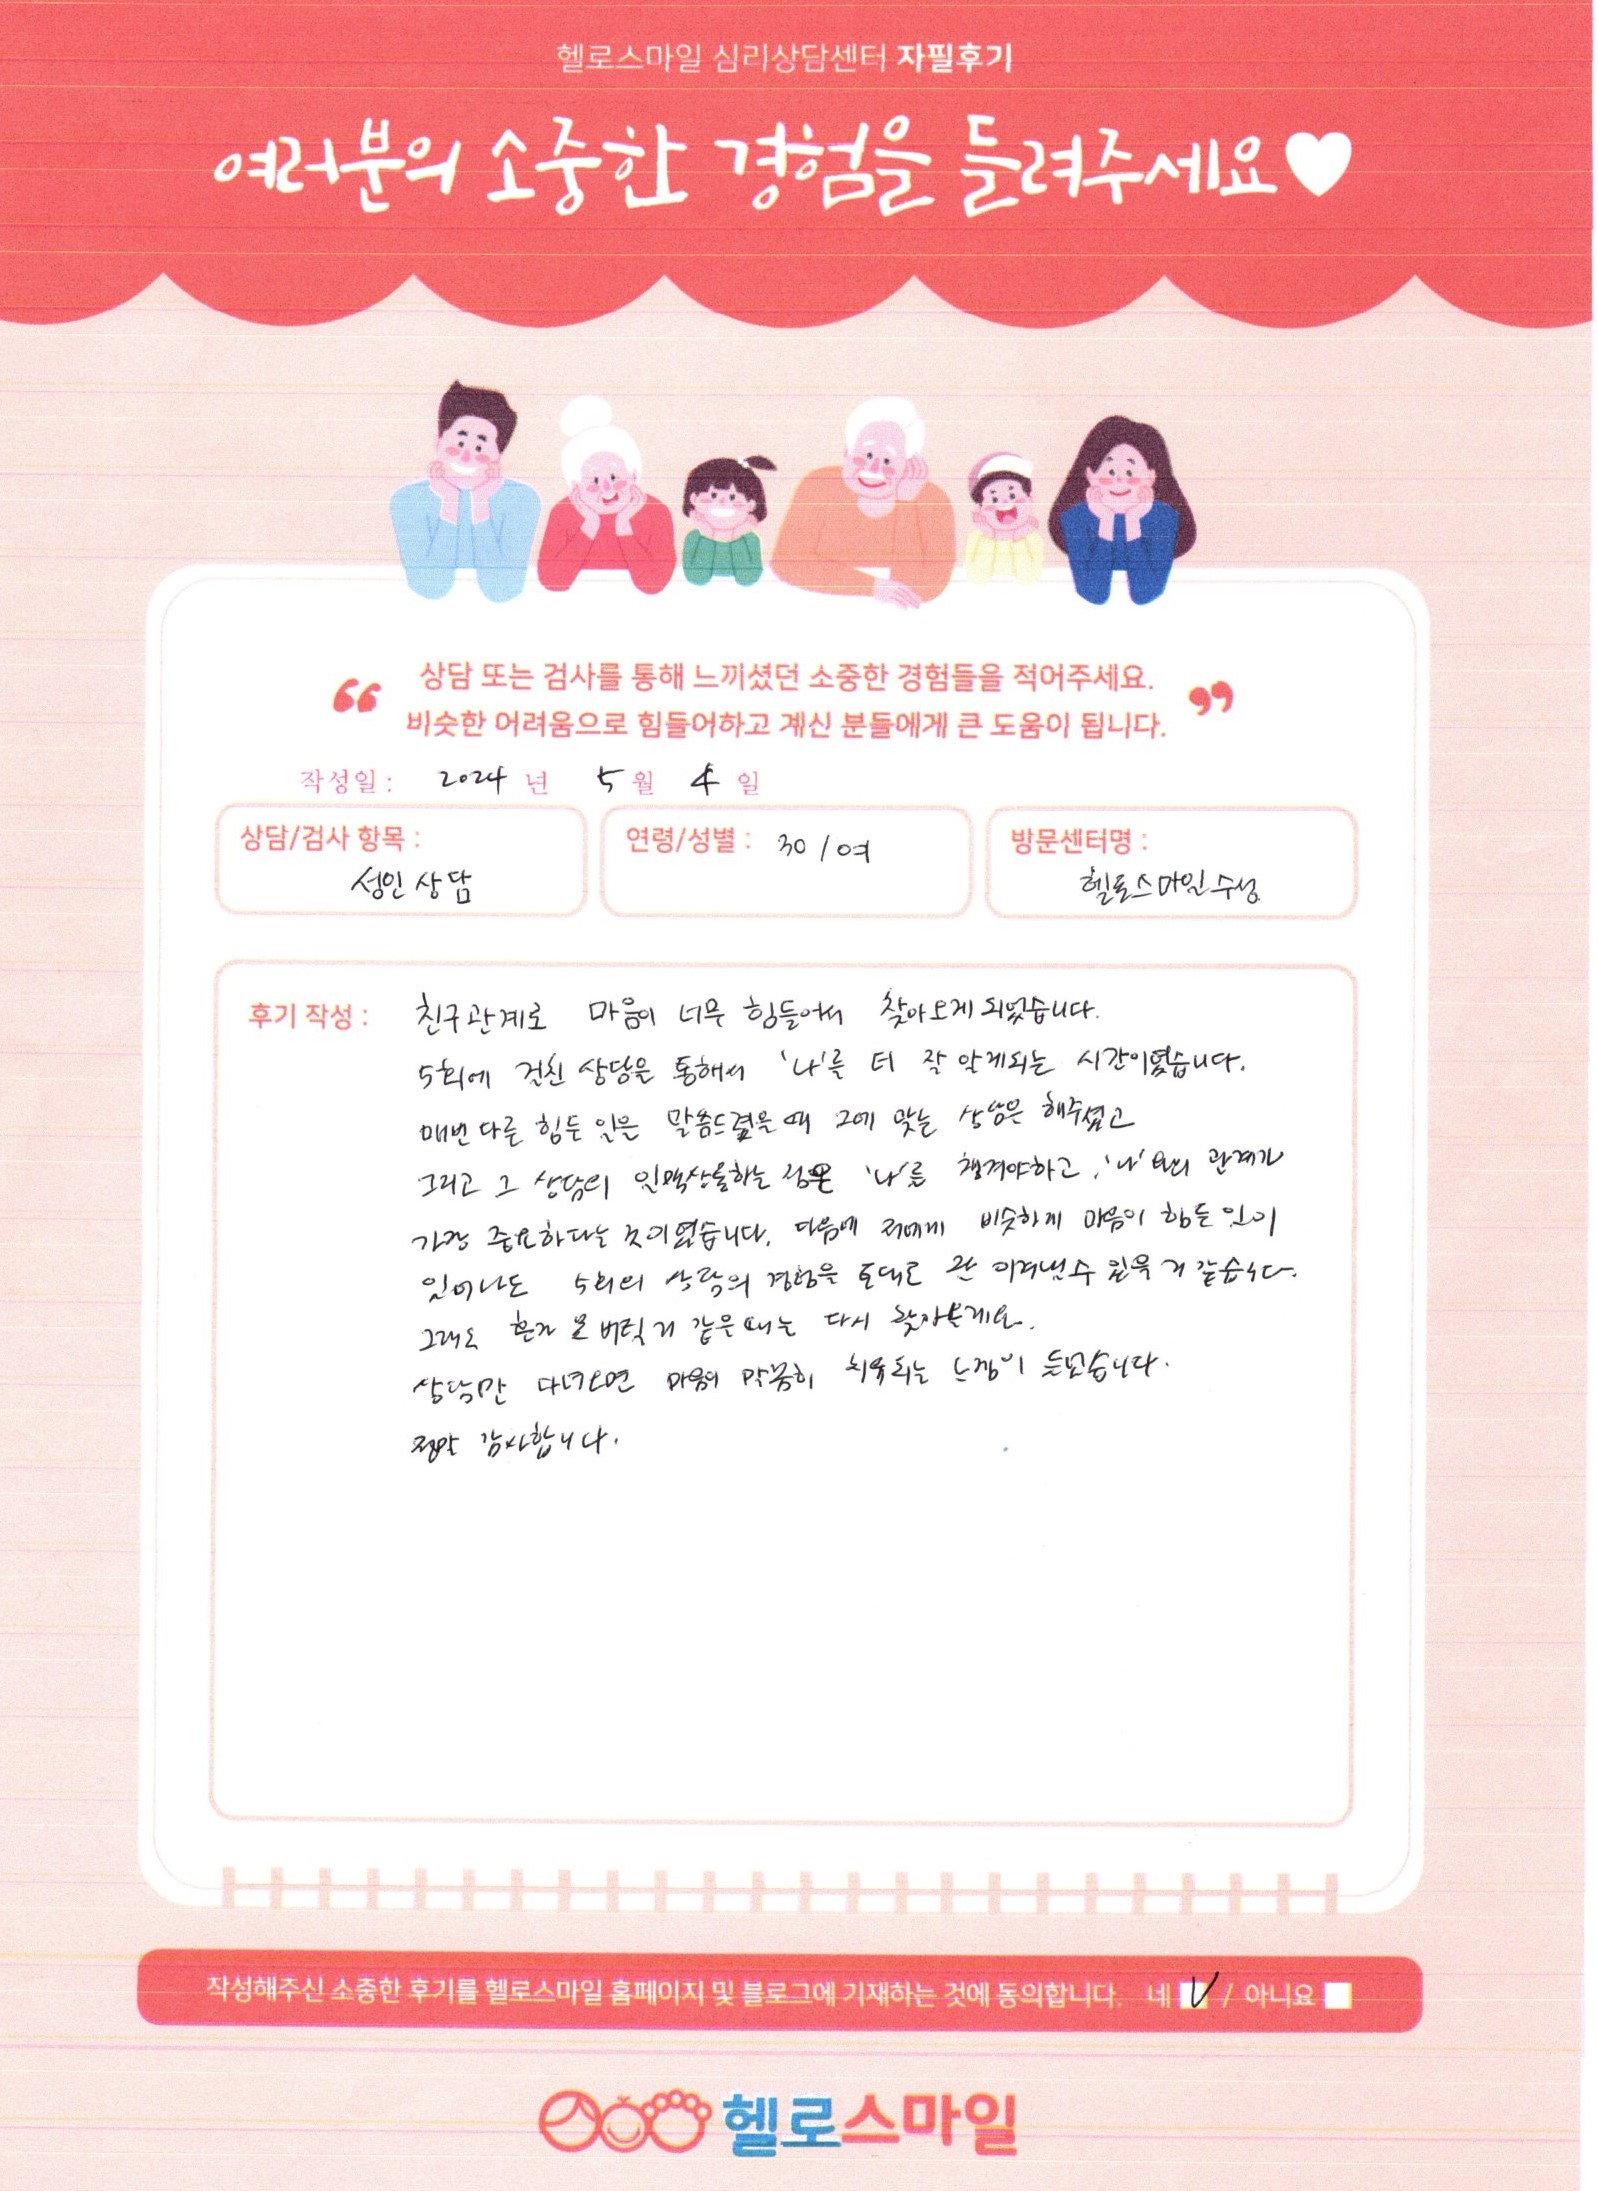 헬로스마일 심리상담센터 자필후기
여러분의 소중한 경험을 들려주세요
상담 또는 검사를 통해 느끼셨던 소중한 경험들을 적어주세요.
비슷한 어려움으로 힘들어하고 계신 분들에게 큰 도움이 됩니다.
작성일 : 2024 년 5 월 4 일
상담/검사 항목 :
성인 상담
연령/성별 : 30 / 여
방문센터명 :
헬로스마일 수성
후기 작성 : 친구관계로 마음이 너무 힘들어서 찾아오게 되었습니다.
5회에 걸친 상담을 통해서 '나'를 더 잘 알게되는 시간이였습니다.
매번 다른 힘든 일을 말씀드렸을 때 그에 맞는 상담은 해주셨고
그리고 그 상담의 일맥상통하는 점은 '나'를 챙겨야하고, '나'와의 관계가
가장 중요하다는 것이였습니다. 다음에 저에게 비슷하게 마음이 힘든 일이
일어나도 5회의 상담의 경험을 토대로 잘 이겨낼수 있을 거 같습니다.
그래도 혼자 못 버틸거 같은 때는 다시 찾아올게요.
상담만 다녀오면 마음이 말끔히 치유되는 느낌이 들었습니다.
정말 감사합니다.
작성해주신 소중한 후기를 헬로스마일 홈페이지 및 블로그에 기재하는 것에 동의합니다. 네 V / 아니요
헬로스마일